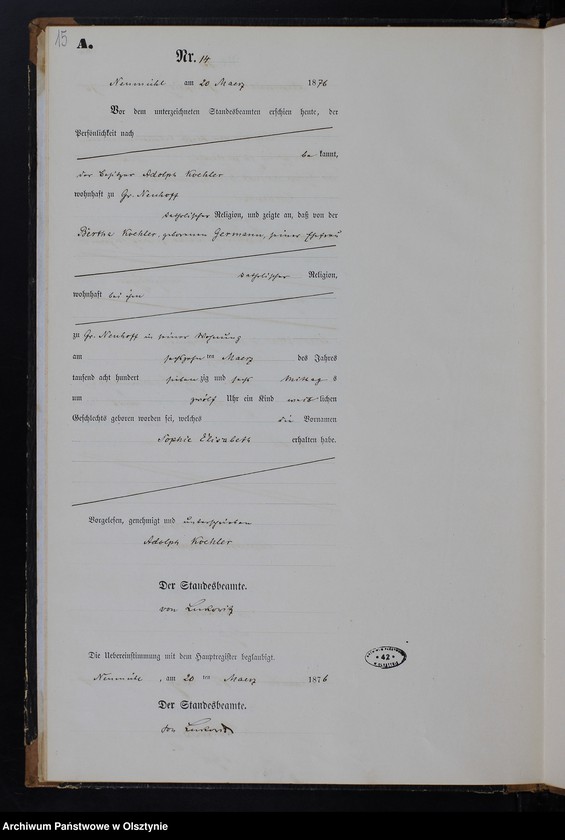 15
A.
Nr. 14
Neumühl am 20 Maerz 1876
Vor dem unterzeichneten Standesbeamten erschien heute, der
Persönlichkeit nach
be kannt,
der Besitzer Adolph Koehler
wohnhaft zu Gr. Neuhoff
katholischer Religion, und zeigte an, daß von der
Bertha Koehler, geborenen Germann, seiner Ehefrau
katholischer Religion,
wohnhaft bei ihm
zu Gr. Neuhoff in seiner Wohnung
am sechszehn ten Maerz des Jahres
tausend acht hundert sieben zig und sechs Mittag s
um zwölf Uhr ein Kind weib lichen
Geschlechts geboren worden sei, welches die Vornamen
Sophie Elisabeth erhalten habe.
Vorgelesen, genehmigt und unterschrieben
Adolph Koehler
Der Standesbeamte.
von
Die Uebereinstimmung mit dem Hauptregister beglaubigt.
Neumühl, am 20 ten Maerz 1876
Der Standesbeamte.
von
42
Archiwum Państwowe w Olsztynie